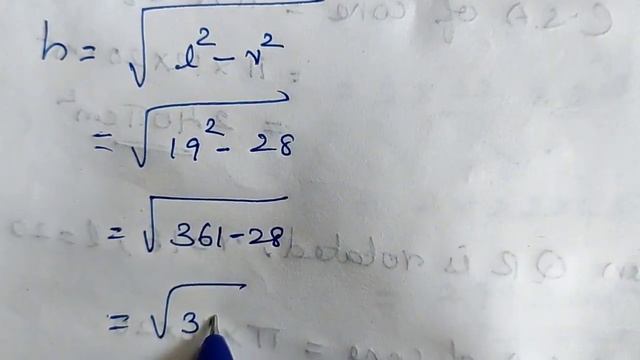 h = √l² - r²
= √19² - 28
= √361-28
= √3